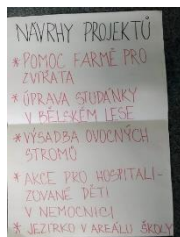 NÁVRHY PROJEKTŮ
* POMOC FARMĚ PRO
ZVÍŘATA
* ÚPRAVA STUDÁNKY
V BĚLSKÉM LESE
* VÝSADBA OVOCNÝCH
STROMŮ
* AKCE PRO HOSPITALI-
ZOVANÉ DĚTI
V NEMOCNICI
* JEZÍRKO V AREÁLU ŠKOLY